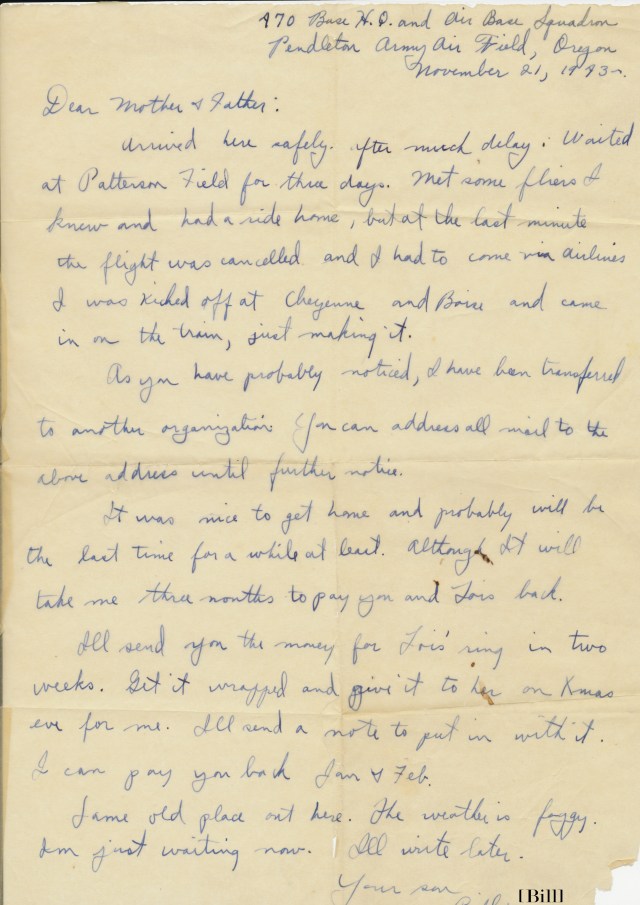 470 Base H.Q. and Air Base Squadron
Pendleton Army Air Field, Oregon
November 21, 1943.
Dear Mother & Father:
Arrived here safely. After much delay. Waited
at Patterson Field for three days. Met some fliers I
knew and had a ride home, but at the last minute
the flight was cancelled and I had to come via airlines
I was kicked off at Cheyenne and Boise and came
in on the train, just making it.
As you have probably noticed, I have been transferred
to another organization. You can address all mail to the
above address until further notice.
It was nice to get home and probably will be
the last time for a while at least. Although it will
take me three months to pay you and Lois back.
I'll send you the money for Lois' ring in two
weeks. Get it wrapped and give it to her on Xmas
eve for me. I'll send a note to put in with it.
I can pay you back Jan & Feb.
Same old place out here. The weather is foggy.
I'm just waiting now. I'll write later.
Your son
[Bill]